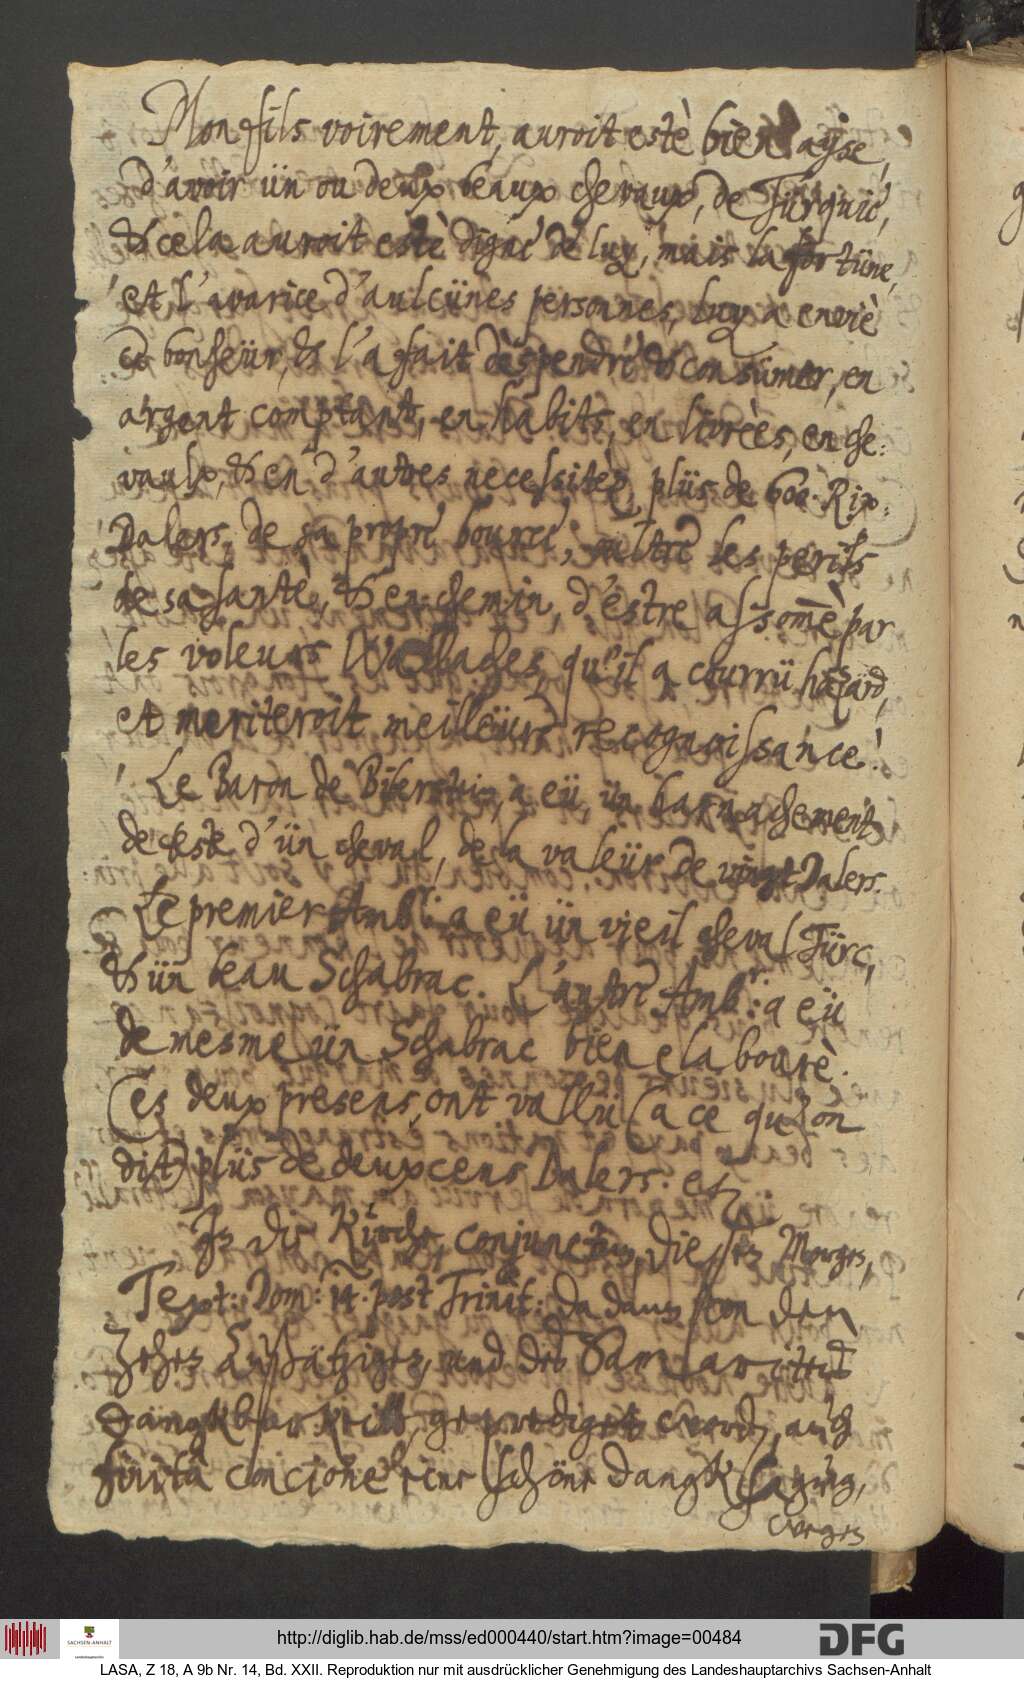 Mon fils voirement, auroit estè bien ayse,
d'avoir ün ou deux beaux chevaux, de Türquie,
& cela auroit estè digne de luy, mais la fortüne,
et l'avarice d'aulcünes personnes, luy a enviè
ce bonheür, & l'a fait despendre & consümer, en
argent comptant, en habits, en livrèes, en che:
vaulx, & en d'autres necessitèz, plüs de 600 Rix:
Dalers, de sa propre bource, oultre les perils
de sa santè, & en chemin, d'estre assomè par
les voleurs Wallaches, qu'il a courrü hazard,
et meriteroit meilleüre recognoissance!
Le Baron de Biberstein, a eü, ün harnachement
de teste d'ün cheval, de la valeür de vingt Dalers.
Le premier Ambr: a eü ün vieil cheval Türc,
& ün beau Schabrac. L'autre Ambr: a eü
de mesme ün Schabrac bien elabourè.
Ces deux presens, ont vallü (a ce qu'on
dit) plüs de deuxcens Dalers. etc
In die Kirche, conjunctim, diesen Morgen,
Text: Dom: 14. post Trinit: da dann von den
Zehen Außätzigen, und des Samlariters
Dangkbarkeitt, geprediget worden, auch
finita concione, eine schöne Dangksagung,
wegen
http://diglib.hab.de/mss/ed000440/start.htm?image=00484
SACHSEN-ANHALT
DFG
LASA, Z 18, A 9b Nr. 14, Bd. XXII. Reproduktion nur mit ausdrücklicher Genehmigung des Landeshauptarchivs Sachsen-Anhalt